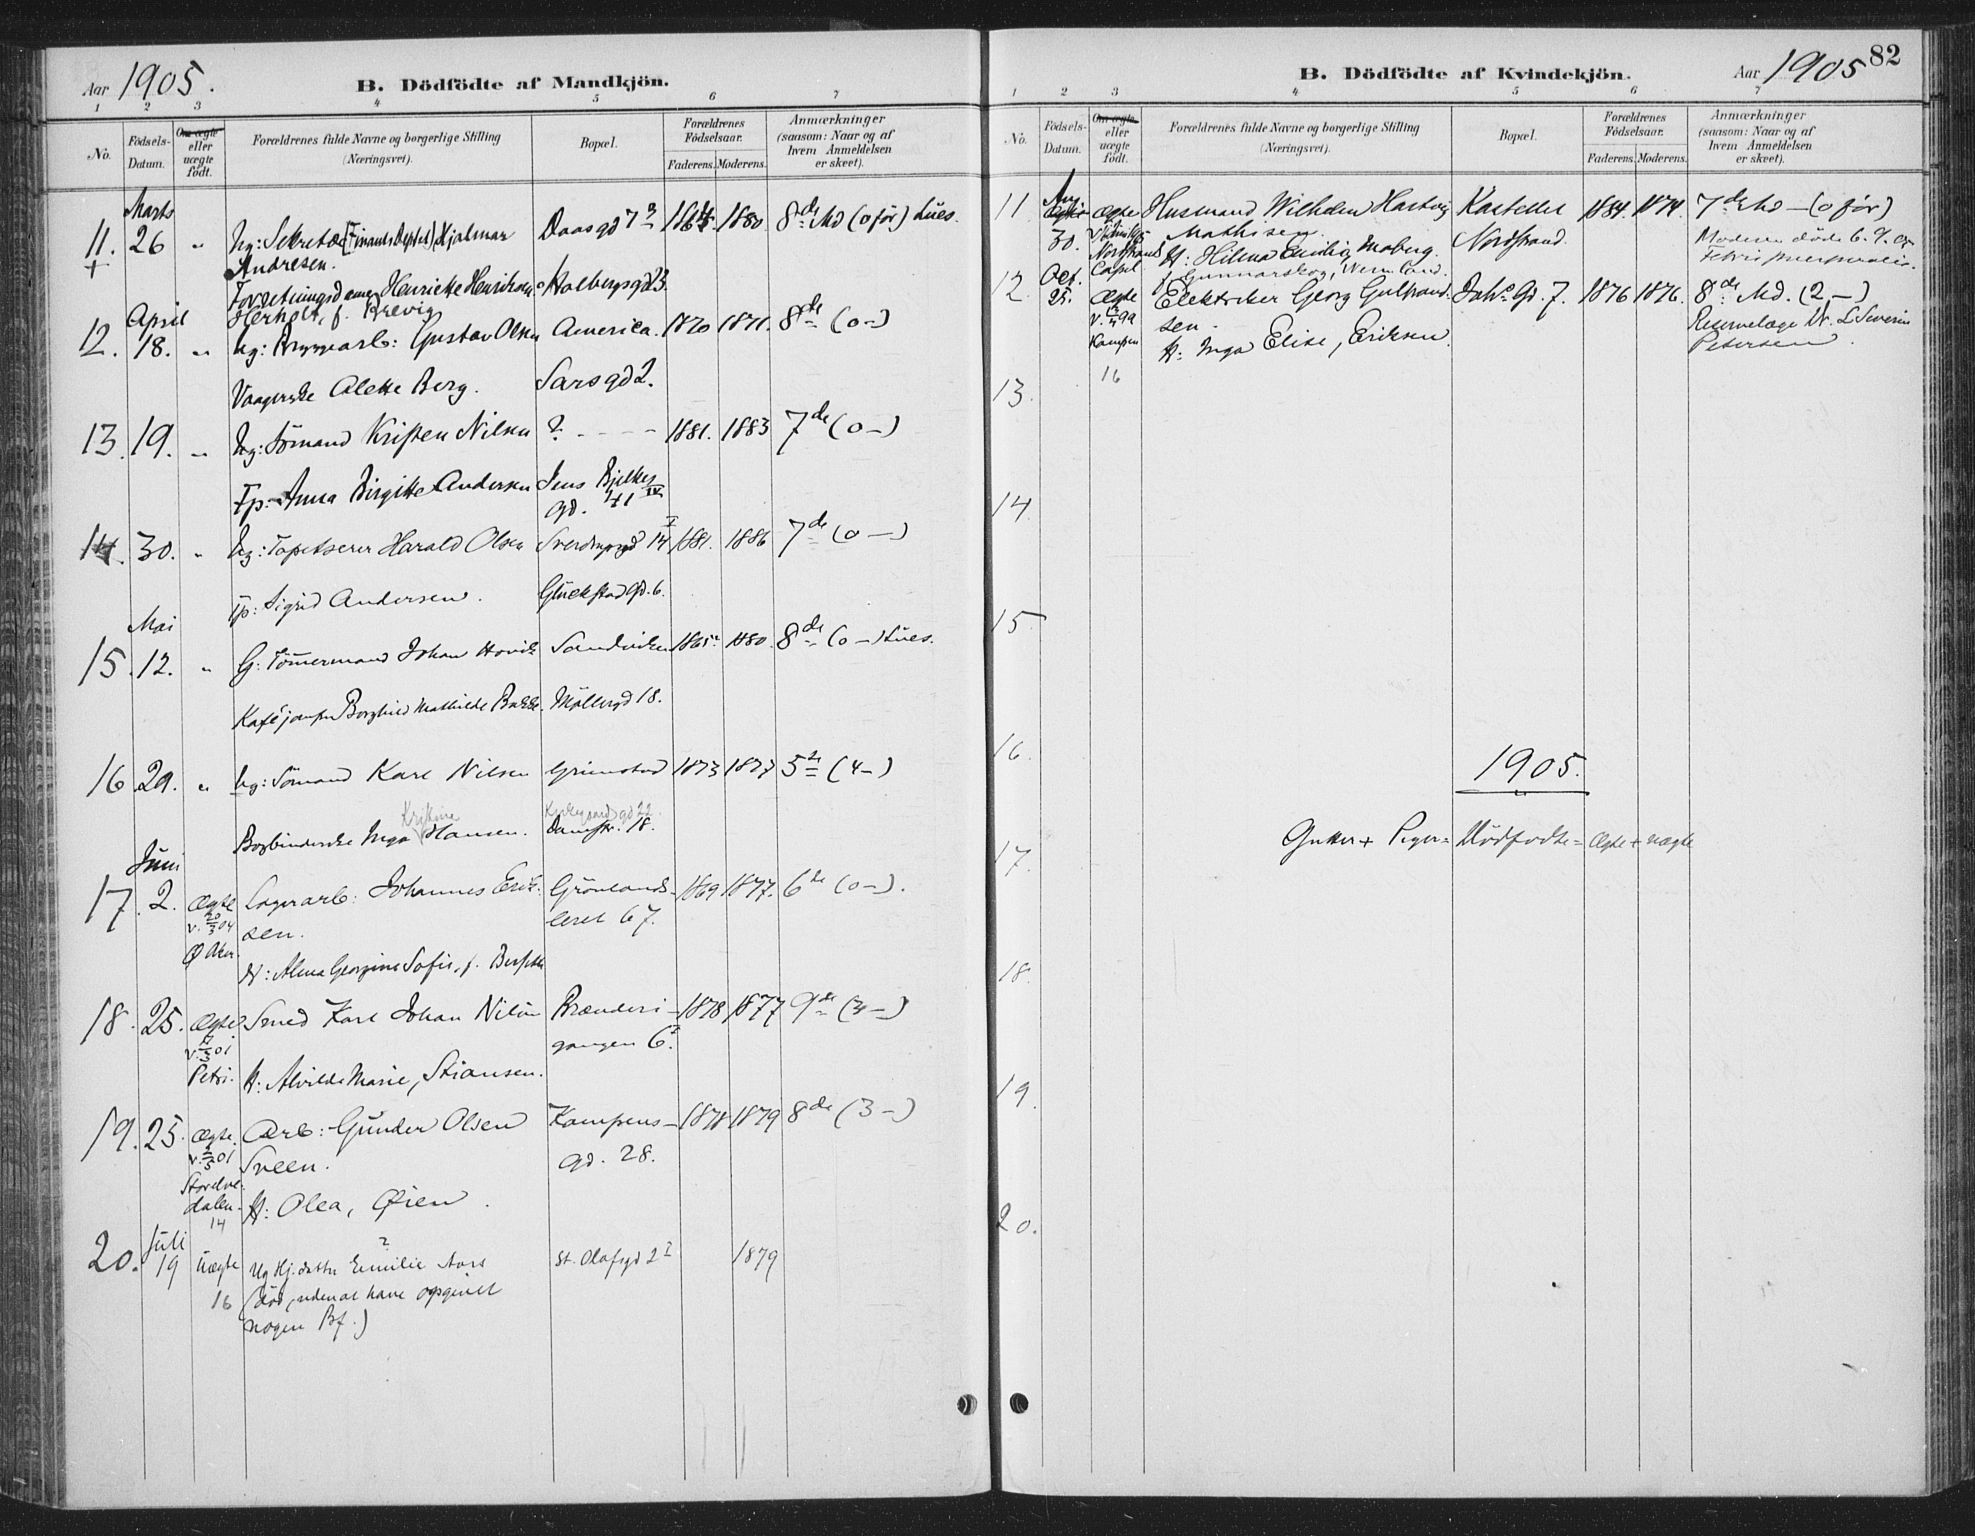 Aar 1905.
B. Dödfödte af Mandkjön.
1 2 3 4 5 6 7
No.
Födsels-Datum.
Om ægte eller uægte født.
Forældrenes fulde Navne og borgerlige Stilling (Næringsvei).
Bopæl.
Forældrenes Födselsaar.
Faderens. Moderens.
Anmærkninger (saasom: Naar og af hvem Anmeldelsen er skeet).
Marts
11. 26 " Ug: Sekretær (Finants Deptet) Hjalmar Daasgd 7 1864. 1880 8de Md (0 før) Lues.
+ Andresen.
Forretningsdame Henriette Henriksen Holbergsgd 23.
Herholt, f. Brevig
April
12. 18. " Ug: Bryggearb: Gustav Olsen America. 1870 1871. 8de (0 –)
Vaagerske Alette Berg. Sarsgd 2.
13. 19. " Ug: Sømand Kristen Nilsen ? - - - - 1881. 1883 7de (0 –)
Fp: Anna Birgitte Andersen Jens Bjelkes
gd. 41 IV
14. 30. " Ug: Tapetserer Harald Olsen Sverdrupgd 14 I 1881. 1886 7de (0 –)
Fp: Sigrid Andersen. Glückstad gd. 6.
Mai
15. 12. " G: Tømmermand Johan Hovik Sandviken 1865 1880. 8de (0 –) Lues.
Kaféjomfru Borghild Mathilde Bakke. Møllergd 18.
16. 29. " Ug: Sømand Karl Nilsen Grimstad 1873 1877 5te (4 –)
Kristine Kirkegaardsgd 22.
Bogbinderske Inga Hansen. Damstr. 18.
Juni
17. 2. Ægte Lagerarb: Johannes Erik- Grönlands- 1869 1877. 6te (0 –).
v. 20/3 04 sen. leret 67.
Ø Aker. H: Alma Georgine Sofie, f.
18. 25. Ægte Smed Karl Johan Nilsen Brænderi- 1878 1877 9de (3 –)
v. 01 gangen 6.
Petri. H: Alvilde Marie, Stiansen.
19. 25. Ægte. Arb: Gunder Olsen Kampens- 1878 1879 8de (3 –)
v. 2/5 01 Sveen. gd. 28.
Storelve-
dalen. H: Olea, Øien.
14
Juli
20. 19 Uægte Ug Hj. datter Emilie Aars St. Olafsgd 2 I 1879
16 (død, uden at have opgivet
nogen Bf.)
82
B. Dödfödte af Kvindekjön.
Aar 1905
1 2 3 4 5 6 7
No.
Födsels-Datum.
Om ægte eller uægte födt.
Forældrenes fulde Navne og borgerlige Stilling (Næringsvei).
Bopæl.
Forældrenes Födselsaar.
Faderens. Moderens.
Anmærkninger (saasom: Naar og af hvem Anmeldelsen er skeet).
Aug.
11. 30. Ægte Husmand Wilhelm Hartvig Kastellet 1884. 1874. 7de Md – (0 før)
Mathisen. Nordstrand. Moderen døde 6. 9. 05
Nordstrands H: Hilma Emilie, Moberg. Febris puerperalis.
Capel f Gunnarskog, Wermland.
Oct.
12. 25. Ægte Elektriker Georg Gulbrand- Gd. 7. 1876 1876. 8de Md. (2 –)
v. 99 sen. Reservelæge Dr. L Severin
Kampen H: Inga Elise, Eriksen. Petersen.
16
13.
14.
15.
16.
1905.
Gutter + Piger = Dödfødte = Ægte + uægte
17.
18.
19.
20.